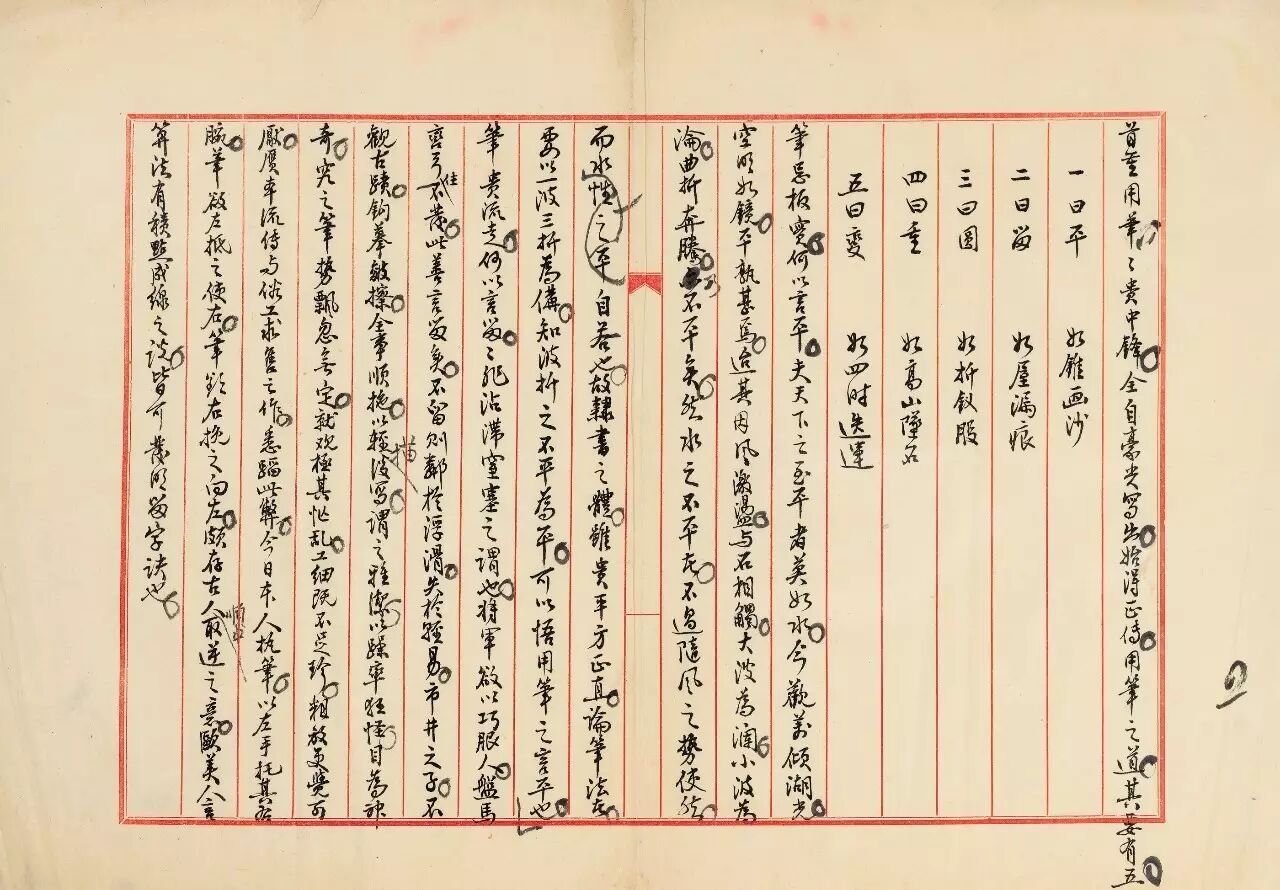 首重用筆〻貴中鋒全自毫尖寫出始得正傳用筆之道其要有五
一曰平 如錐画沙
二曰留 如屋漏痕
三曰圆 如折釵股
四曰重 如高山墜石
五曰变 如四时迭運
筆忌板實何以言平夫天下之至平者莫如水今觀萬頃湖光
空明如鏡平孰甚焉迨其因風激盪与石相觸大波為瀾小波為
淪曲折奔騰乃不平矣然水之不平在不過隨風之勢使然
而水性之平自若也故隸書之體雖貴平方正直論筆法在
要以一波三折為備知波折之不平為平可以悟用筆之言平也
筆貴流走何以言留〻非沾滯窒塞之謂也将軍欲以巧服人盤馬
彎弓不發佳此善言留矣不留則鄰於浮滑失於輕易市井之子不
觀古蹟鈎摹皴擦全事順拖以輕淡描寫謂之雅潔以躁率狂怪目為神
奇究之筆勢飄忽無定就欢極其忙乱工细既不足珍粗放更覺可
厭贋本流传与俗工求售之作悉蹈此弊今日本人执筆以左手托其右
腕筆欲左抵之使右筆欲右挽之向左頗存古人取逆之意歐美人言
算法有積點成線之说皆可發明留字訣也
順口